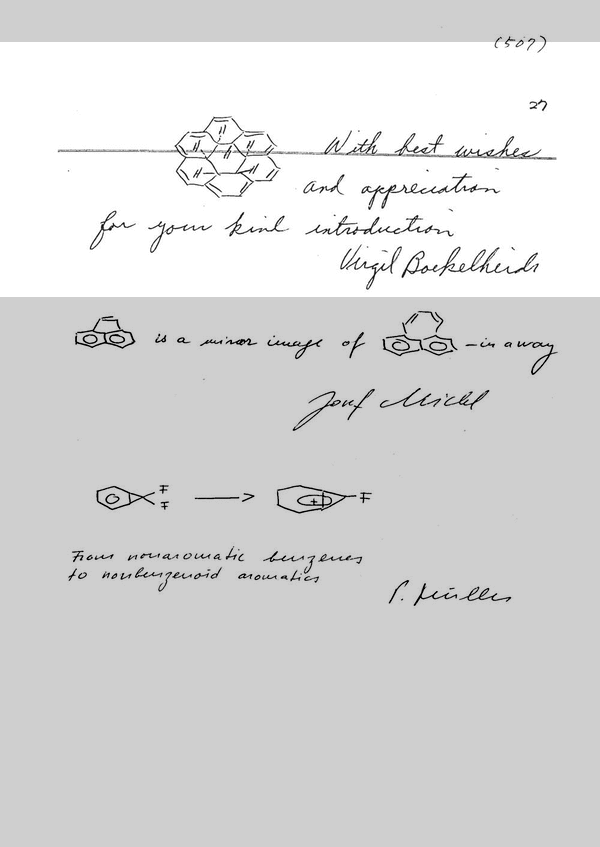 (507)
27
With best wishes
and appreciation
for your kind introduction
Virgil Boekelheide
is a mirror image of — in a way
Josef Michl
F
F
+
F
From nonaromatic benzenes
to nonbenzenoid aromatics
P. Müller